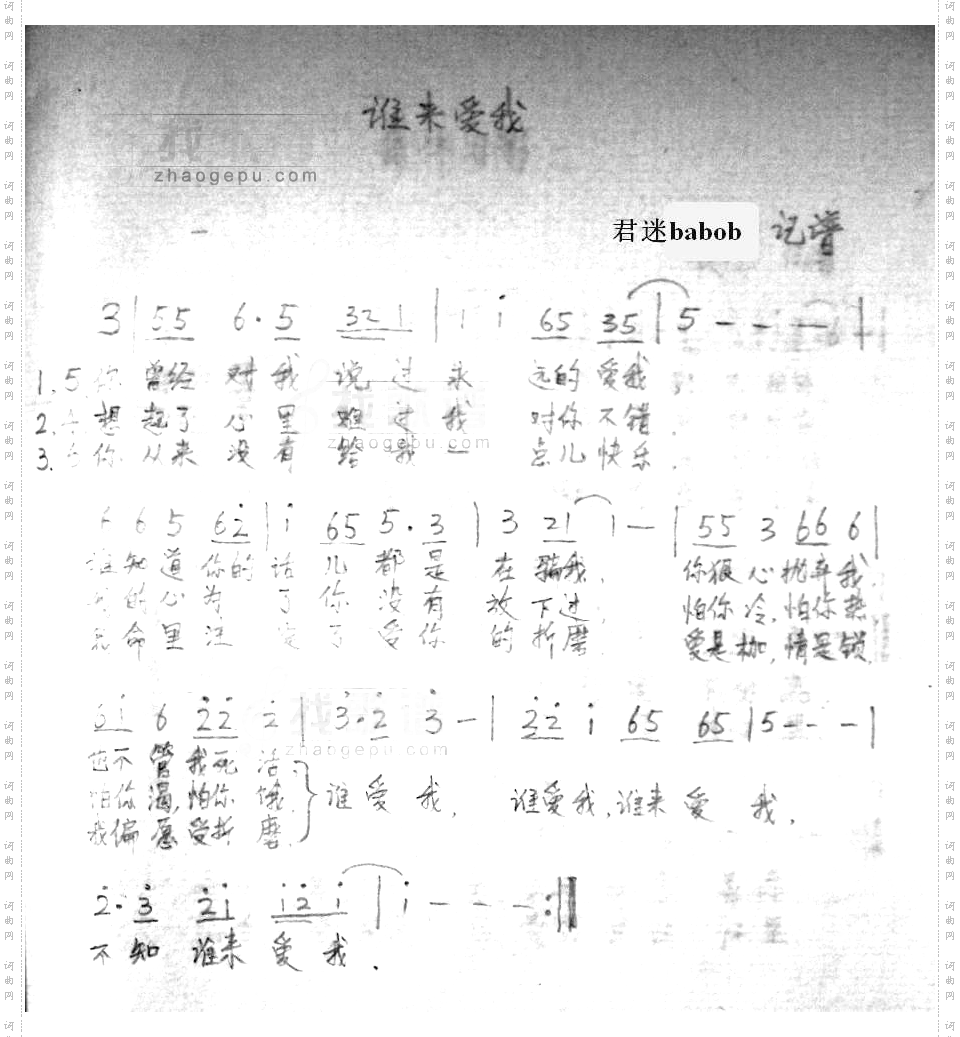 谁来爱我
zhaogepu.com
君迷babob 记谱
3 | 55 6·5 321 | 1 i 65 35 | 5 - - - |
1. 你曾经对我说过永远的爱我,
2. 想起了心里难过我对你不错.
3. 你从来没有给我一点儿快乐.
zhaogepu.com
6 6 5 62̇ | i 65 5·3 | 3 21 1 - | 55 3 66 6 |
谁知道你的话儿都是在骗我, 你狠心抛弃我,
的心为了你没有放下过, 怕你冷,怕你热
命里注定了受你的折磨 爱是枷,情是锁,
6i 6 2̇2̇ 2̇ | 3̇·2̇ 3̇ - | 2̇2̇ i 65 65 | 5 - - - |
zhaogepu.com
也不管我死活.
怕你渴,怕你饿. } 谁爱我, 谁爱我,谁来爱我.
我偏愿受折磨.
2̇·3̇ 2̇i i2̇i | i - - - :‖
不知谁来爱我.
词曲网